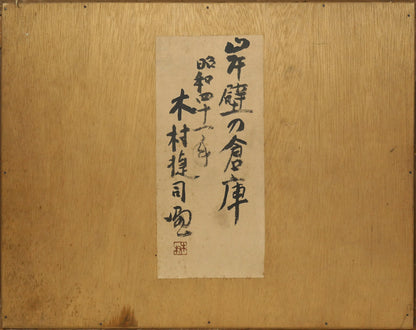 岸壁の倉庫
昭和四十一年
木村捷司画